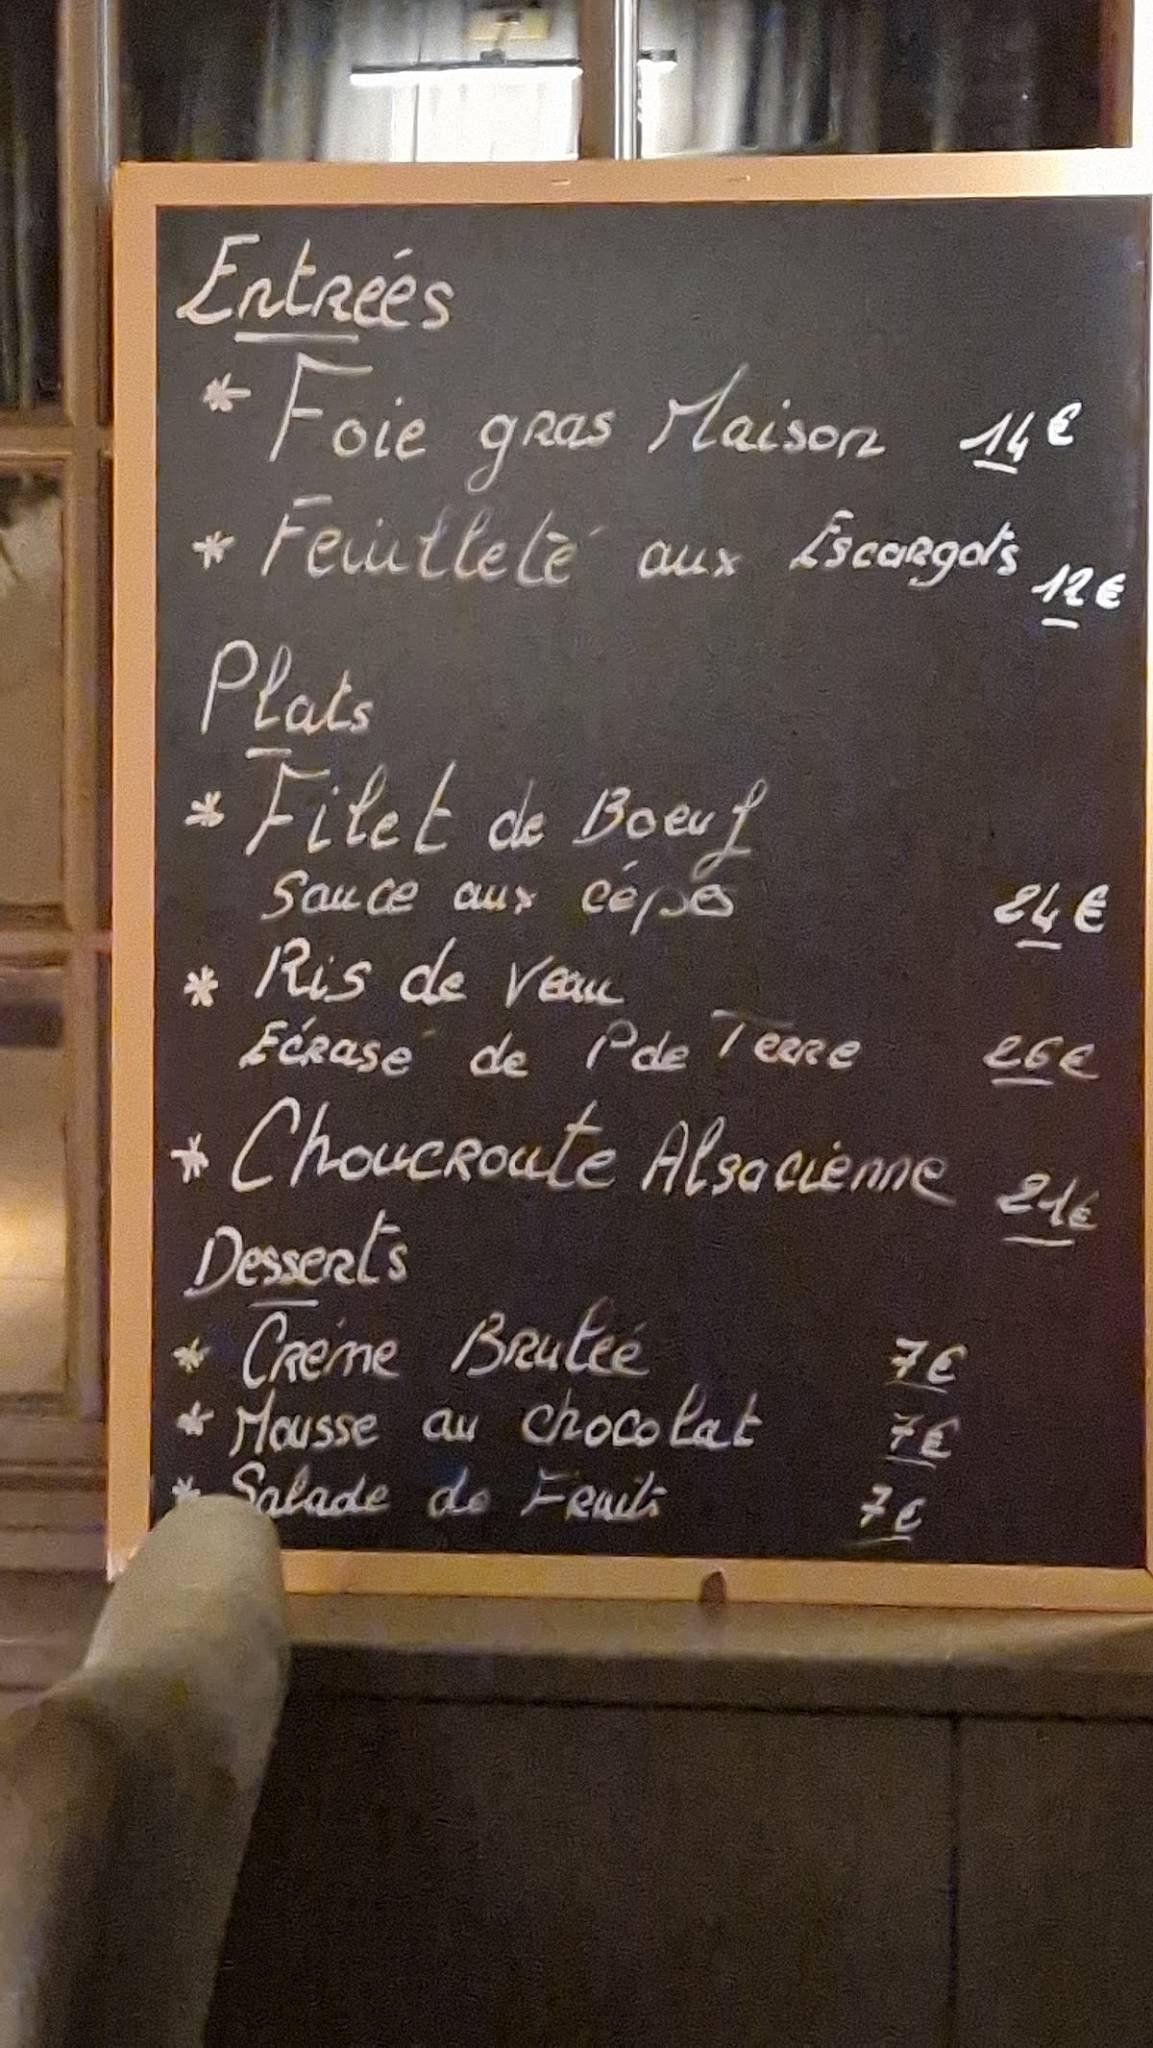 Entreés
* Foie gras Maison 14€
* Feuilleté aux Escargots 12€
Plats
* Filet de Boeuf
Sauce aux cépes 24€
* Ris de Veau
Ecrasé de P de Terre 26€
* Choucroute Alsacienne 21€
Desserts
* Créme Bruleé 7€
* Mousse au chocolat 7€
* Salade de Fruits 7€